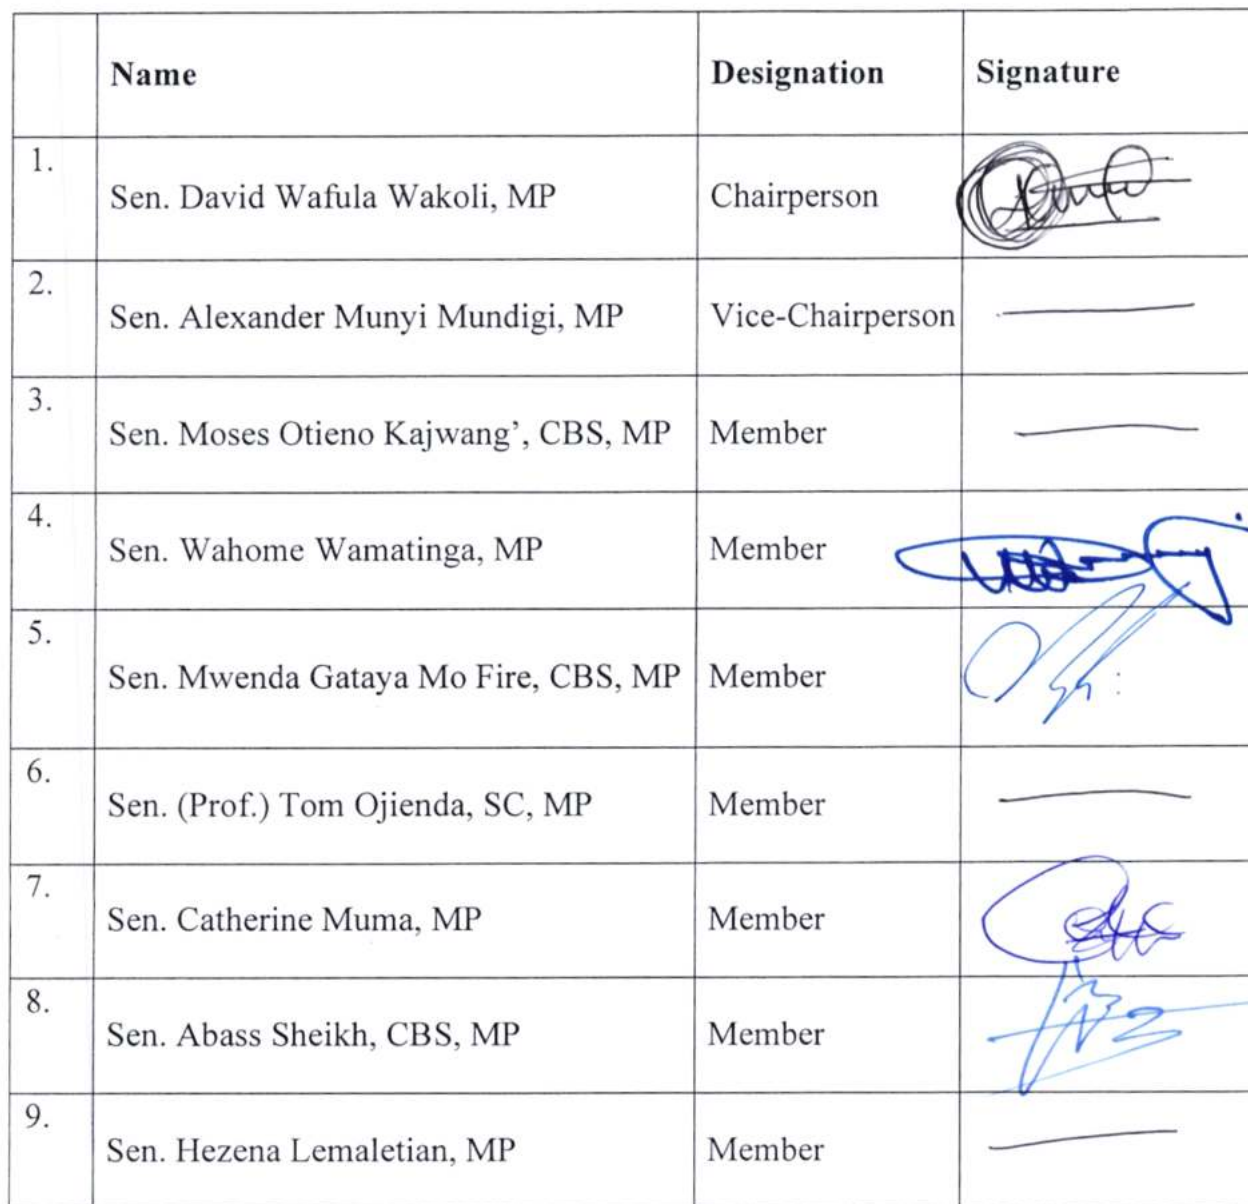 Name Designation Signature
1. Sen. David Wafula Wakoli, MP Chairperson
2. Sen. Alexander Munyi Mundigi, MP Vice-Chairperson
3. Sen. Moses Otieno Kajwang’, CBS, MP Member
4. Sen. Wahome Wamatinga, MP Member
5. Sen. Mwenda Gataya Mo Fire, CBS, MP Member
6. Sen. (Prof.) Tom Ojienda, SC, MP Member
7. Sen. Catherine Muma, MP Member
8. Sen. Abass Sheikh, CBS, MP Member
9. Sen. Hezena Lemaletian, MP Member